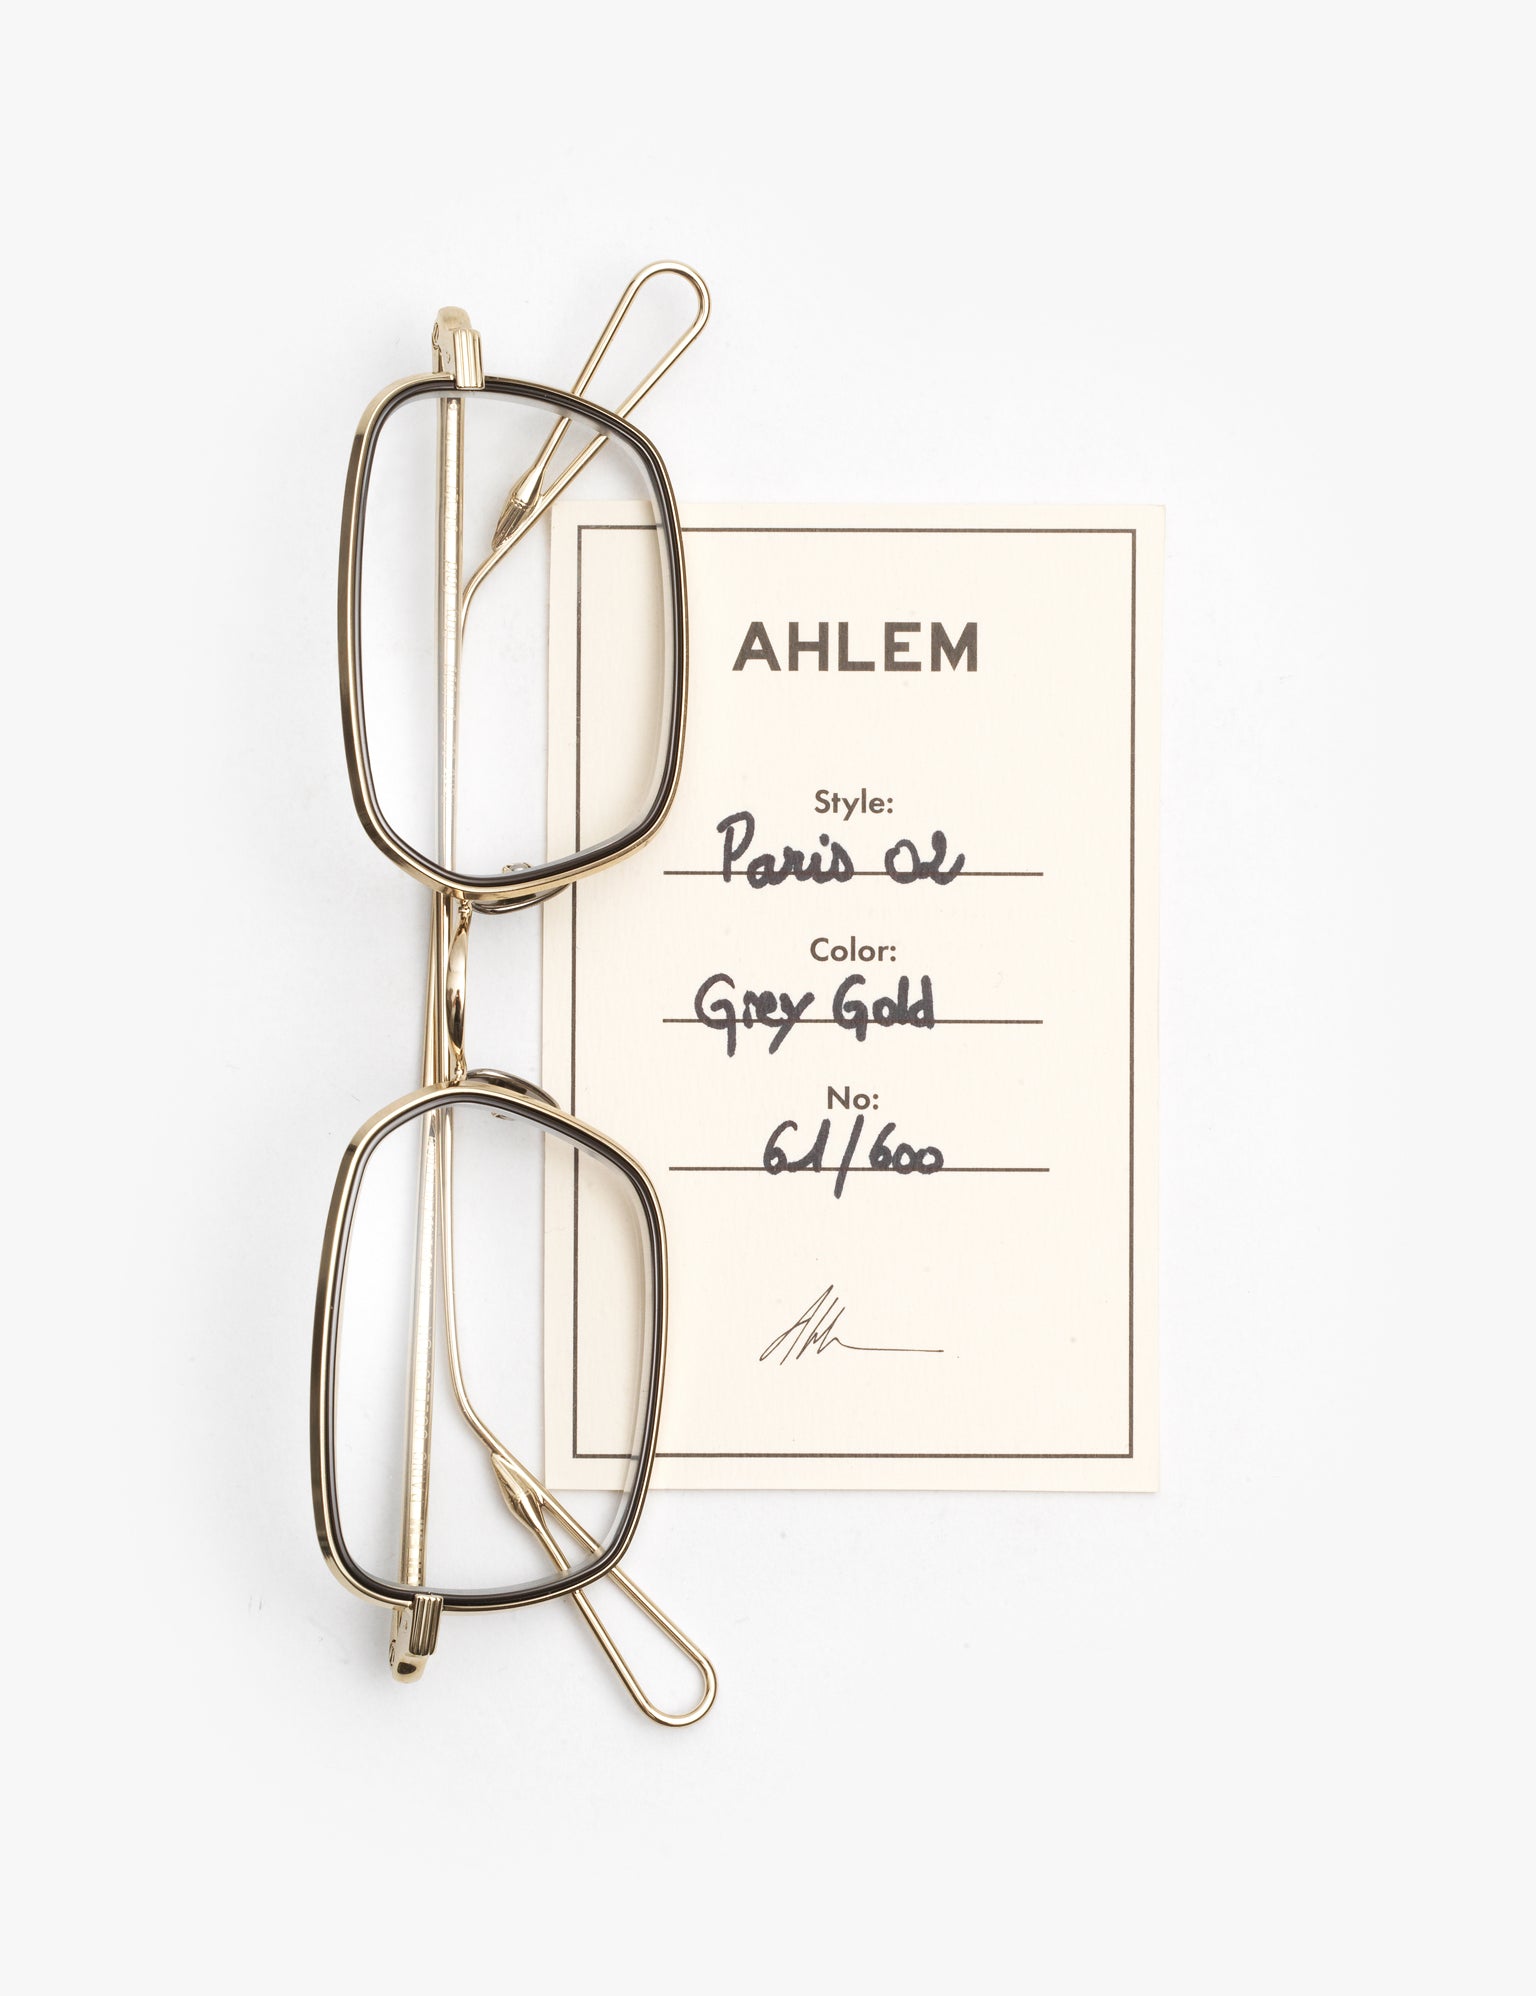 AHLEM
Style:
Paris 02
Color:
Grey Gold
No:
61/600